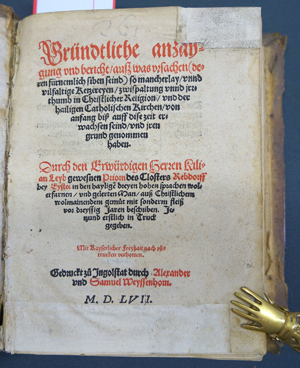 Gründtliche anzay-
gung vnd bericht/ auß was vrsachen (de-
ren fürnemlich siben seind) so mancherlay/ vnnd
vilfaltige Ketzereyen/ zwispaltung vnnd jrr-
thumb in Christlicher Religion/ vnd der
heiligen Catholischen Kirchen/ von
anfang biß auff dise zeit er-
wachsen seind/ vnd jren
grund genommen
haben.
Durch den Erwürdigen Herren Kili-
an Leyb gewesnen Priorn des Closters Rebdorff
bey Eystet in den haylige dreyen hohen sprachen wol-
erfarnen/ vnd gelerten Man/ auß Christlichem
wolmainendem gemüt mit sonderm fleiß
vor dreyssig Jaren beschriben. Je-
tzund erstlich in Truck
gegeben.
Mit Kayserlicher Freyhait nach zů
trucken verbotten.
Gedruckt zů Ingolstat durch Alexander
vnd Samuel Weyssenhorn.
M. D. LVII.